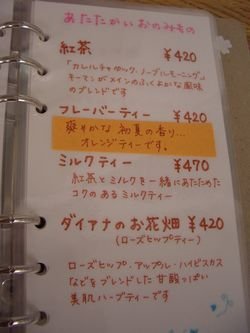 あたたかいおのみもの
紅茶 ¥420
「カレルチャペック・ノーブルモーニング」
キーマンがメインのふくよかな風味
のブレンドです
フレーバーティー ¥420
爽やかな初夏の香り…
オレンジティーです。
ミルクティー ¥470
紅茶とミルクを一緒にあたためた
コクのあるミルクティー
ダイアナのお花畑 ¥420
(ローズヒップティー)
ローズヒップ・アップル・ハイビスカス
などをブレンドした甘酸っぱい
美肌ハーブティーです